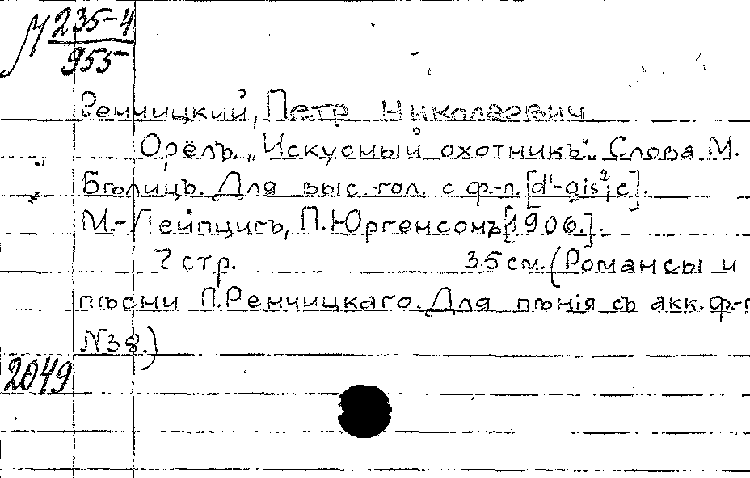 М 235-4
955
Ренчицкий, Петр Николаевич
Орёлъ. „Искусный охотникъ". Слова М.
Бѣлицъ. Для выс. гол. с ф-п. [d¹-gis²; c].
М.-Лейпцигъ, П. Юргенсонъ [1906.].
7 стр. 35 см. (Романсы и
пѣсни П. Ренчицкаго. Для пѣнія съ акк. ф-п
N38.)
2049